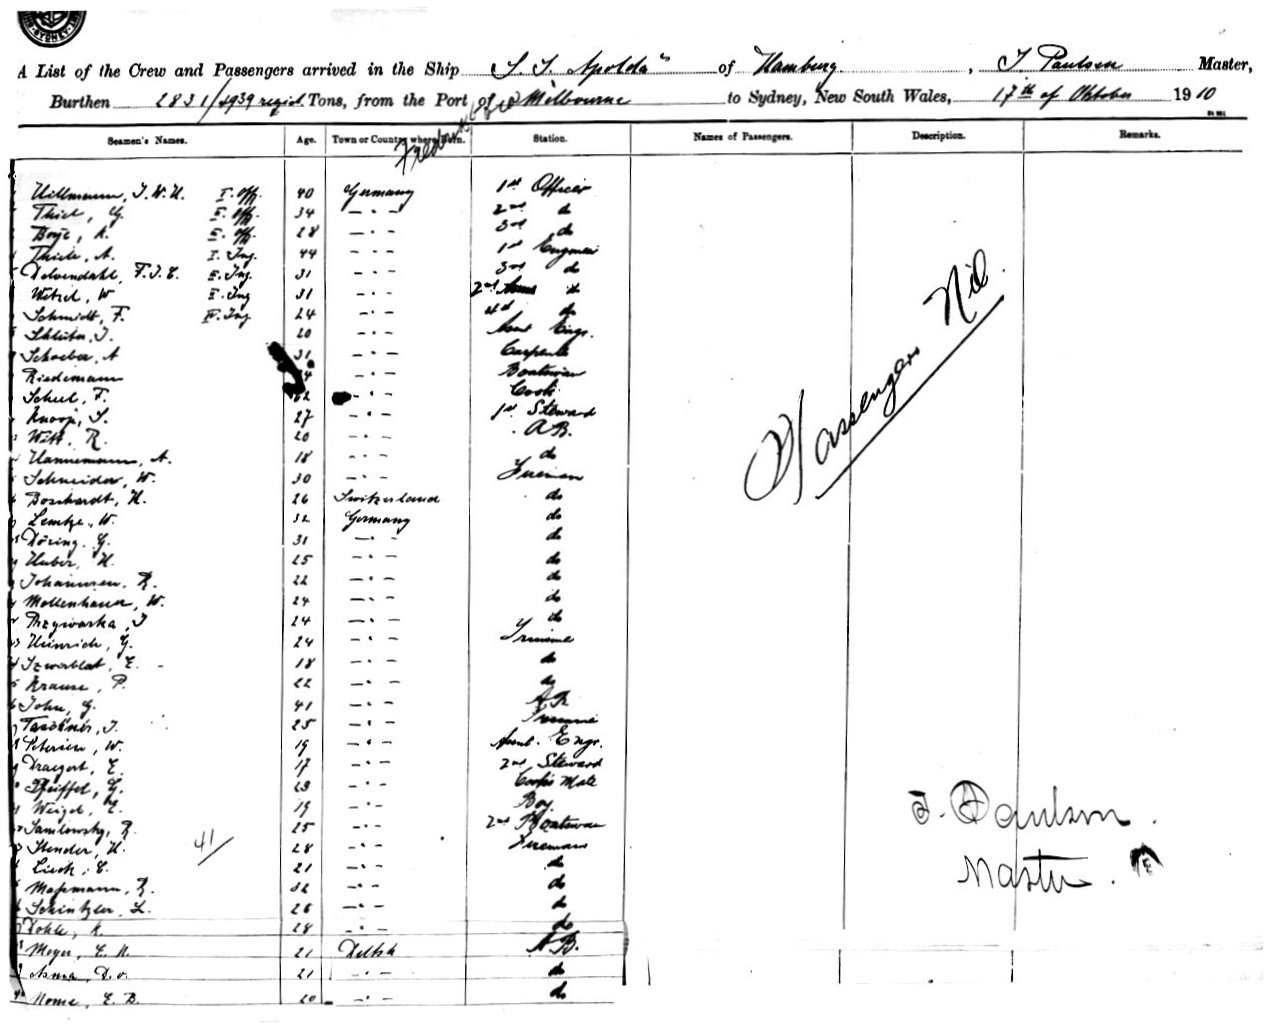 SYDNEY
A List of the Crew and Passengers arrived in the Ship S. S. "Apolda" of Hamburg, J Paulsen Master,
Burthen 2831/4939 regist. Tons, from the Port of Melbourne to Sydney, New South Wales, 17th of Oktober 1910
Seamen's Names. Age. Town or Country where Born. Station. Names of Passengers. Description. Remarks.
J. W. H. I. Off. 40 Germany 1st Officer
Thiel, G. II. Off. 34 — " — 2nd do
Boye, K. III. Off. 28 — " — 3rd do
Thiele, A. I. Ing. 44 — " — 1st Engineer
Delvendahl, F. J. C. III. Ing. 31 — " — 3rd do
Wetzel, W II. Ing 31 — " — 2nd do
Schmidt, F. IV. Ing 24 — " — 4th do
Schlüter, J. 20 — " — Asst Engr.
Schaeber, A 31 — " — Carpenter
Riedemann — " — Boatswain
Scheel, F. — " — Cook
Knoop, S. 27 — " — 1st Steward
Witt, R. 20 — " — A B.
Hannemann, A. 18 — " — do
Schneider, W. 30 — " — Fireman
Bosshardt, H. 26 Switzerland do
Lemtze, W. 32 Germany do
Döring, G. 31 — " — do
Huber, H. 25 — " — do
Johannsen, R. 22 — " — do
Mollenhauer, W. 24 — " — do
Przywarka, J 24 — " — do
Heinrich, G. 24 — " — Trimmer
Szwerblat, E. 18 — " — do
Krause, P. 22 — " — do
John, G. 41 — " — A B
J. 25 — " — Trimmer
Petersen, W. 19 — " — Assist. Engr.
Draegert, E. 17 — " — 2nd Steward
Pfeiffel, G. 23 — " — Cooks Mate
Weigel, E. 19 — " — Boy
Samilowsky, R. 25 — " — 2nd Boatswain
Stender, H. 28 — " — Fireman
Lieck, E. 21 — " — do
Massmann, R. 32 — " — do
Schintzler, L. 26 — " — do
Dohle, K. 28 — " — do
Meyer, E. H. 21 A B.
Asma, D. 21 — " — do
40 Nome, E. B. 20 — " — do
41/
Passengers Nil
J. Paulsen.
Master.